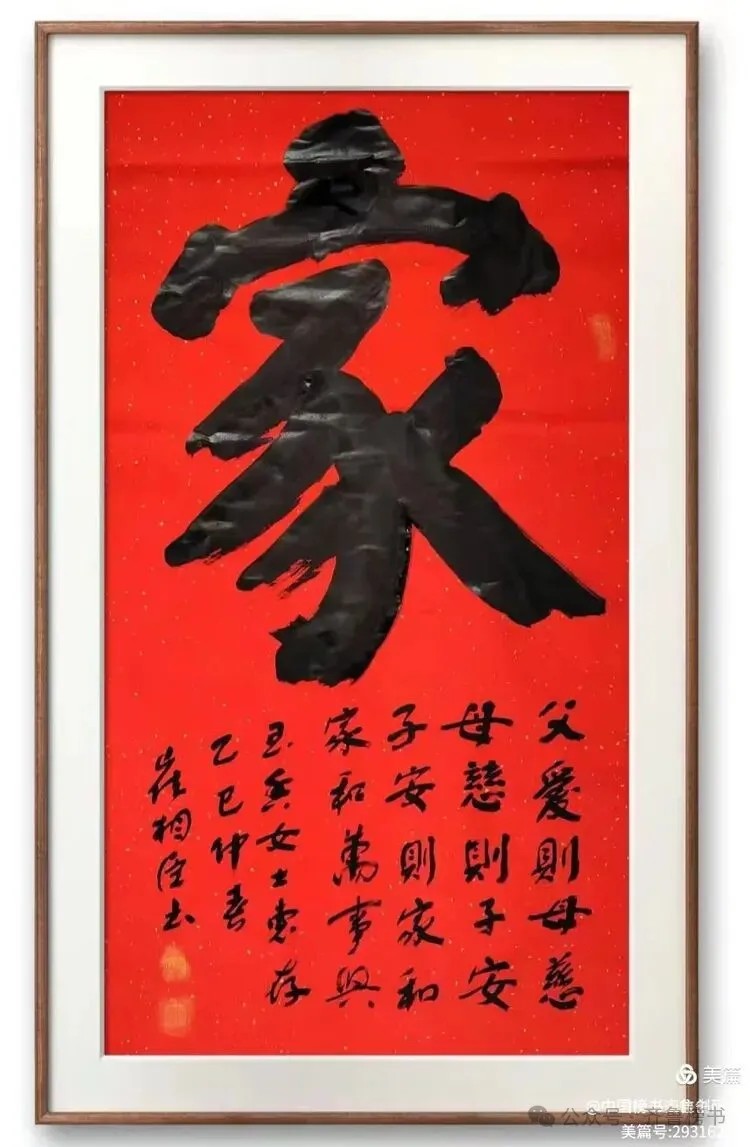 家
父愛則母慈
母慈則子安
子安則家和
家和萬事興
女士惠存
乙巳仲春
崔相 书
美篇
@中国榜书
公众号·齐鲁榜书
美篇号:293162